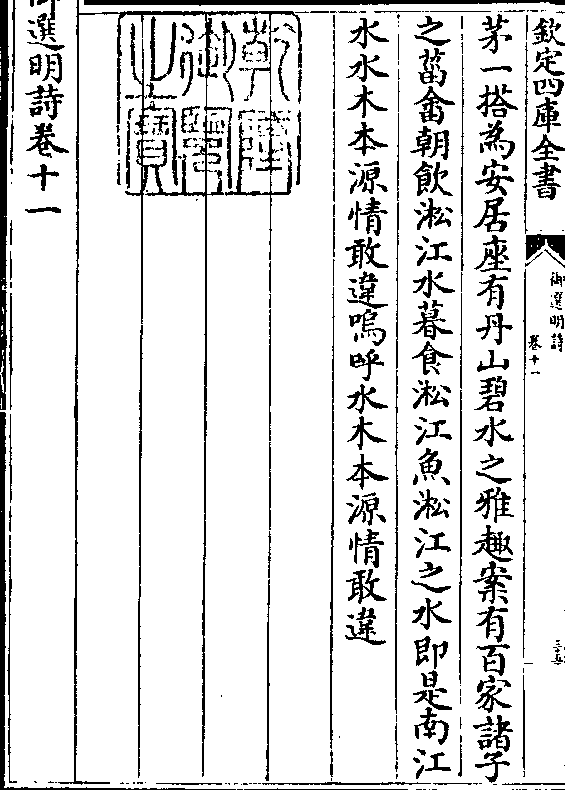 欽定四庫全書
御選明詩
卷十一
茅一搭為安居座有丹山碧水之雅趣案有百家諸子
之菑畬朝飲淞江水暮食淞江魚淞江之水即是南江
水水木本源情敢違嗚呼水木本源情敢違
乾隆
御覽
之寶
御選明詩卷十一